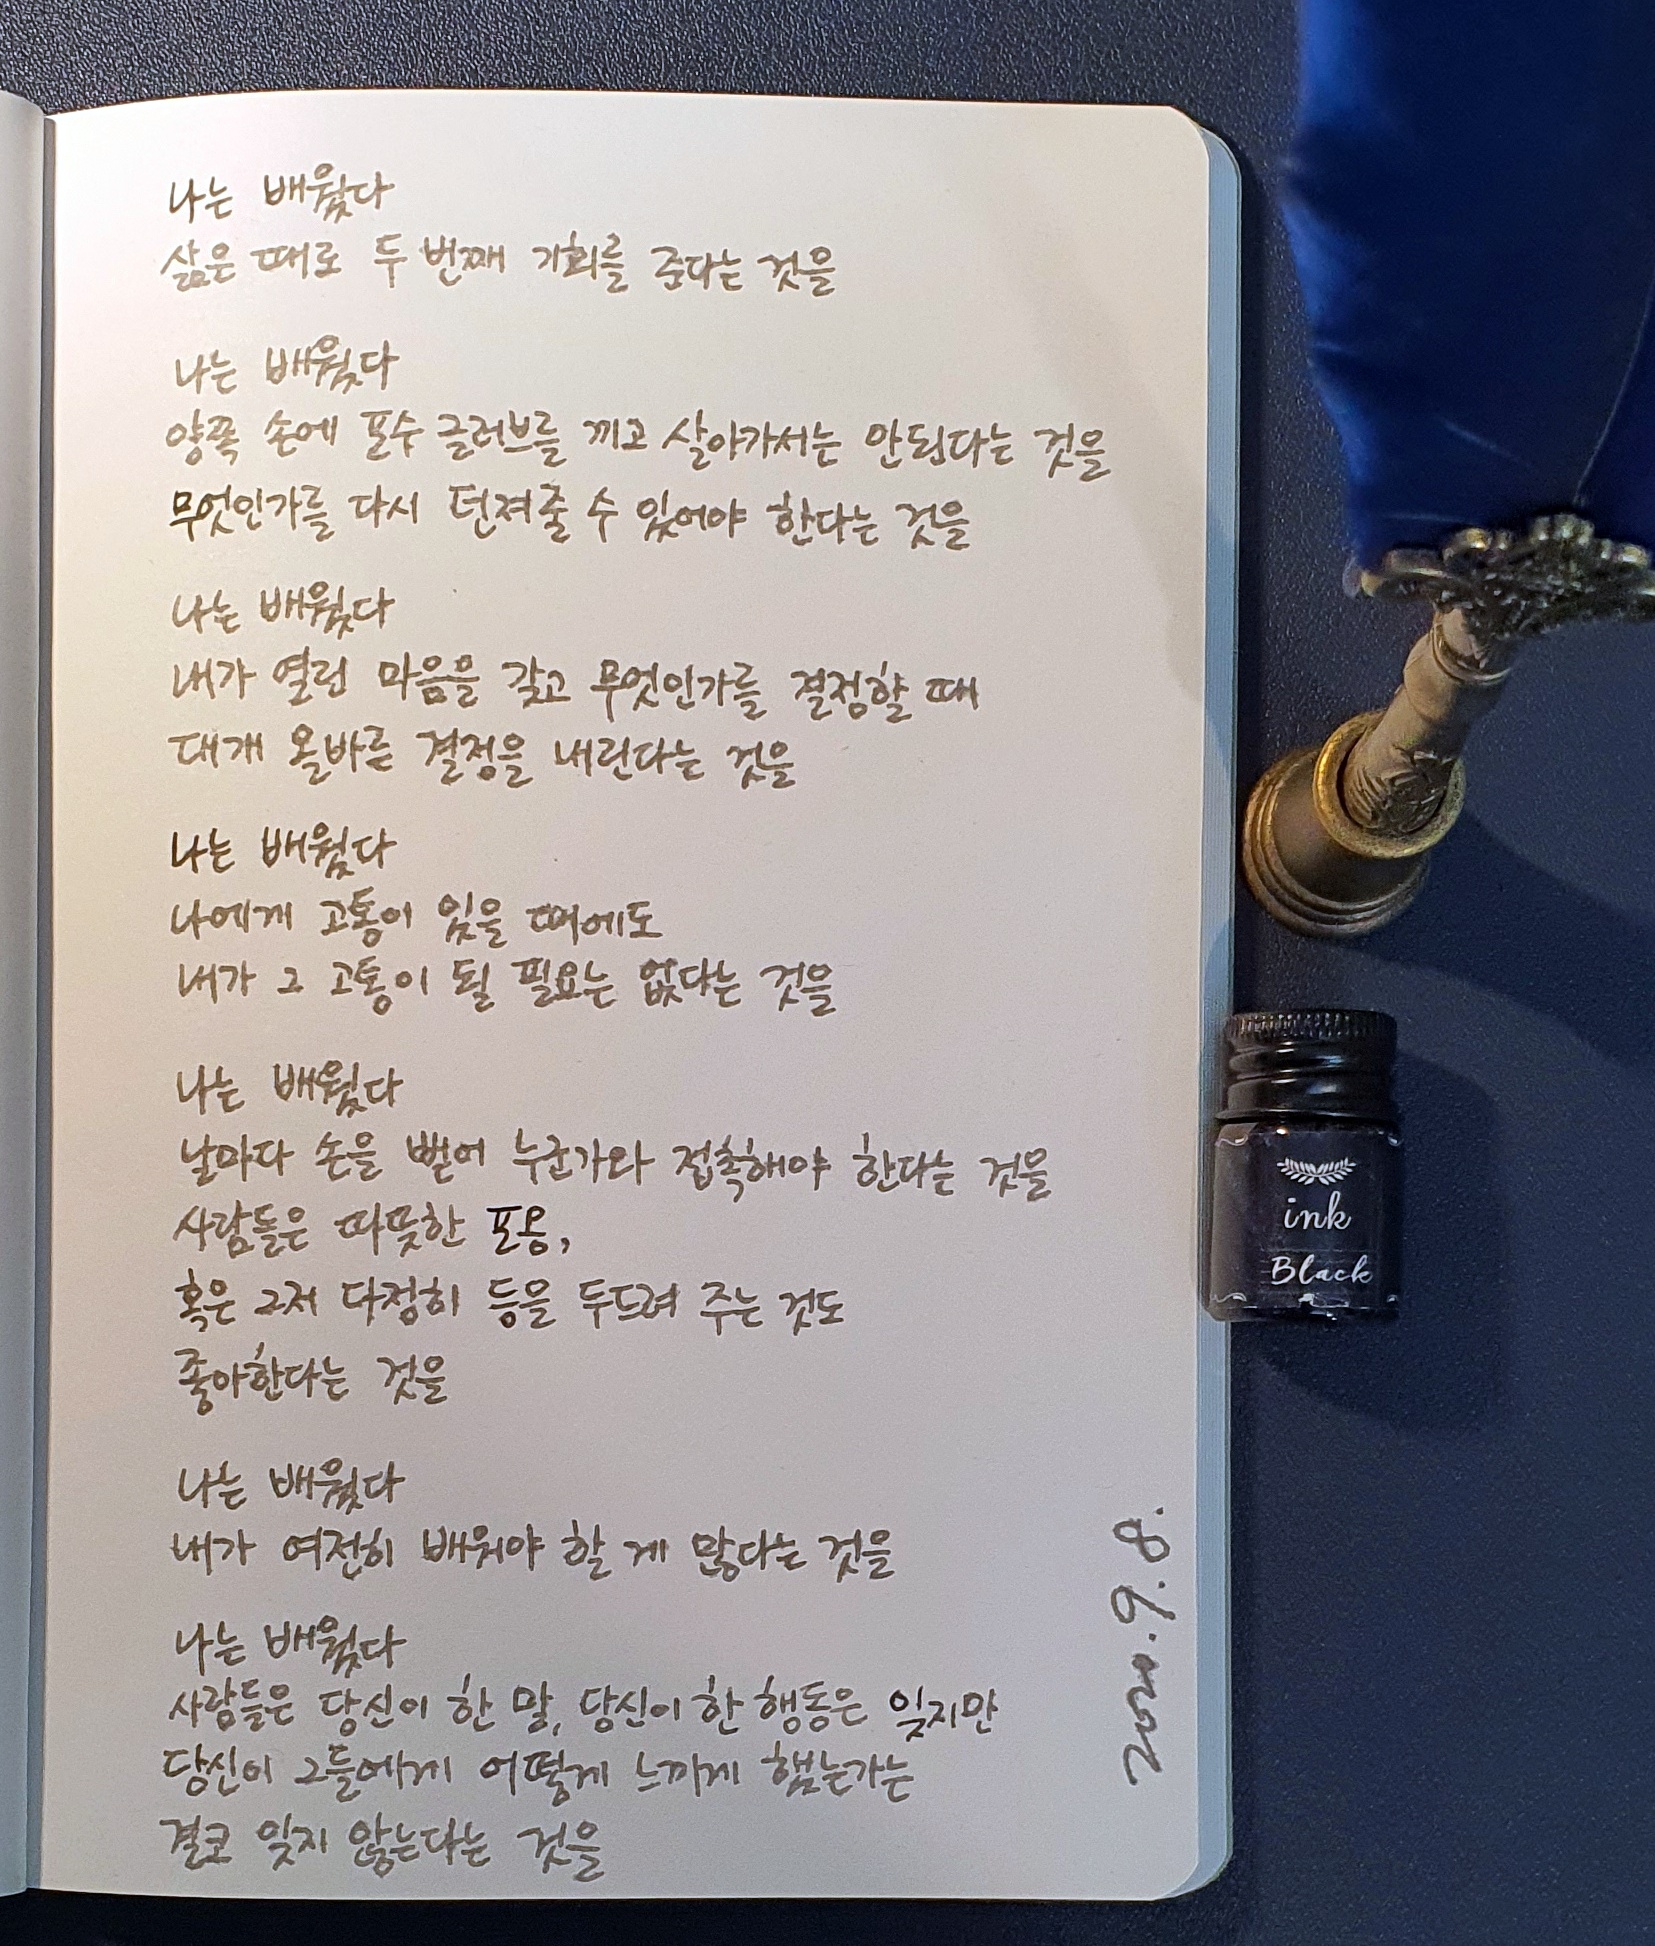 나는 배웠다
삶은 때로 두 번째 기회를 준다는 것을
나는 배웠다
양쪽 손에 포수 글러브를 끼고 살아가서는 안된다는 것을
무엇인가를 다시 던져줄 수 있어야 한다는 것을
나는 배웠다
내가 열린 마음을 갖고 무엇인가를 결정할 때
대개 올바른 결정을 내린다는 것을
나는 배웠다
나에게 고통이 있을 때에도
내가 그 고통이 될 필요는 없다는 것을
나는 배웠다
날마다 손을 뻗어 누군가와 접촉해야 한다는 것을
사람들은 따뜻한 포옹,
혹은 그저 다정히 등을 두드려 주는 것도
좋아한다는 것을
나는 배웠다
내가 여전히 배워야 할 게 많다는 것을
나는 배웠다
사람들은 당신이 한 말, 당신이 한 행동은 잊지만
당신이 그들에게 어떻게 느끼게 했는가는
결코 잊지 않는다는 것을
2020. 9. 8.
ink
Black